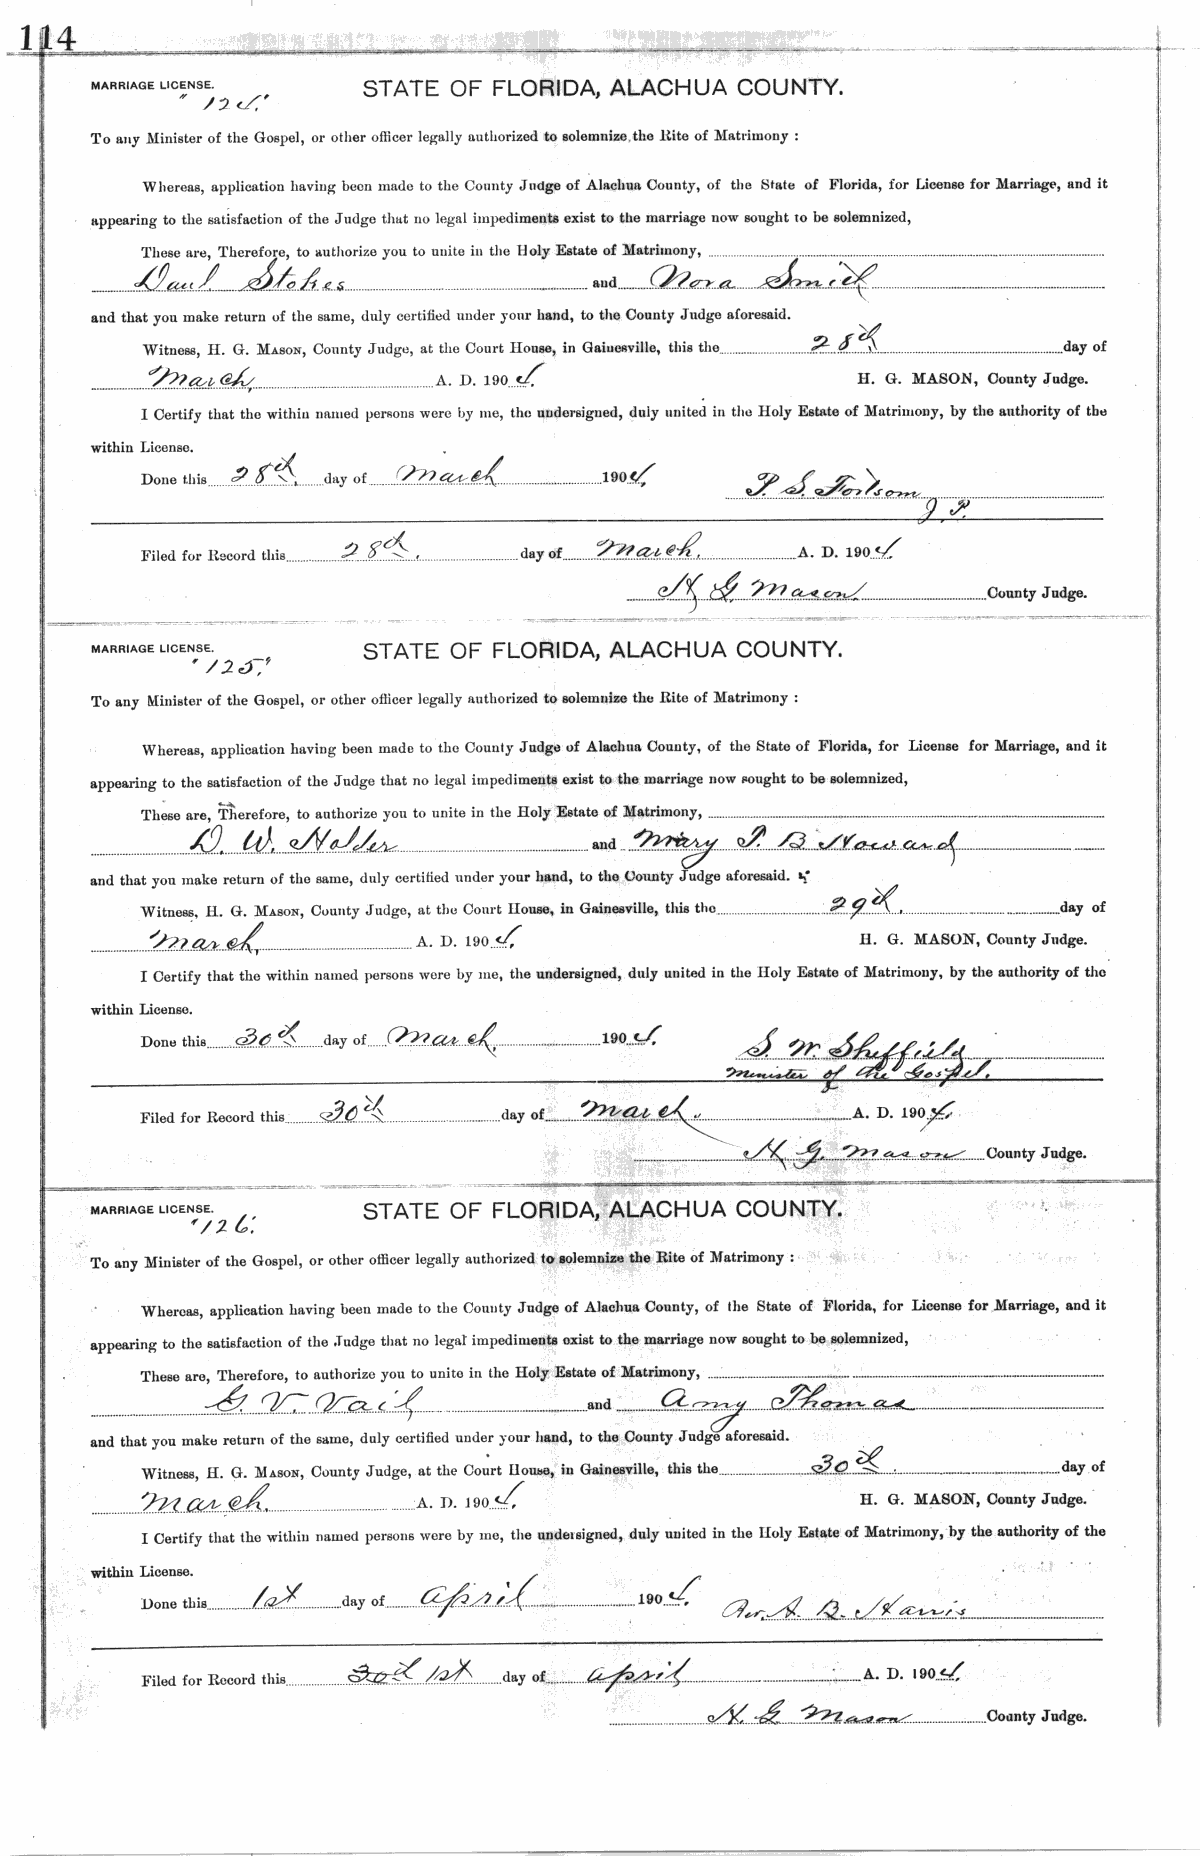 114
MARRIAGE LICENSE.
STATE OF FLORIDA, ALACHUA COUNTY.
"124."
To any Minister of the Gospel, or other officer legally authorized to solemnize the Rite of Matrimony :
Whereas, application having been made to the County Judge of Alachua County, of the State of Florida, for License for Marriage, and it
appearing to the satisfaction of the Judge that no legal impediments exist to the marriage now sought to be solemnized,
These are, Therefore, to authorize you to unite in the Holy Estate of Matrimony,
Stokes and Nora Smith
and that you make return of the same, duly certified under your hand, to the County Judge aforesaid.
Witness, H. G. MASON, County Judge, at the Court House, in Gainesville, this the 28th day of
March, A. D. 1904. H. G. MASON, County Judge.
I Certify that the within named persons were by me, the undersigned, duly united in the Holy Estate of Matrimony, by the authority of the
within License.
Done this 28th. day of March 1904. P. S. Fortsom
J. P.
Filed for Record this 28th. day of March. A. D. 1904.
H G Mason. County Judge.
MARRIAGE LICENSE.
STATE OF FLORIDA, ALACHUA COUNTY.
"125."
To any Minister of the Gospel, or other officer legally authorized to solemnize the Rite of Matrimony :
Whereas, application having been made to the County Judge of Alachua County, of the State of Florida, for License for Marriage, and it
appearing to the satisfaction of the Judge that no legal impediments exist to the marriage now sought to be solemnized,
These are, Therefore, to authorize you to unite in the Holy Estate of Matrimony,
D. W. Holder and Mary P. B Howard
and that you make return of the same, duly certified under your hand, to the County Judge aforesaid.
Witness, H. G. MASON, County Judge, at the Court House, in Gainesville, this the 29th. day of
March, A. D. 1904. H. G. MASON, County Judge.
I Certify that the within named persons were by me, the undersigned, duly united in the Holy Estate of Matrimony, by the authority of the
within License.
Done this 30th day of March. 1904. S. W. Sheffield
Minister of the Gospel.
Filed for Record this 30th day of March. A. D. 1904.
H G. Mason County Judge.
MARRIAGE LICENSE.
STATE OF FLORIDA, ALACHUA COUNTY.
"126."
To any Minister of the Gospel, or other officer legally authorized to solemnize the Rite of Matrimony :
Whereas, application having been made to the County Judge of Alachua County, of the State of Florida, for License for Marriage, and it
appearing to the satisfaction of the Judge that no legal impediments exist to the marriage now sought to be solemnized,
These are, Therefore, to authorize you to unite in the Holy Estate of Matrimony,
G. V. Vail and Amy Thomas
and that you make return of the same, duly certified under your hand, to the County Judge aforesaid.
Witness, H. G. MASON, County Judge, at the Court House, in Gainesville, this the 30th. day of
March. A. D. 1904. H. G. MASON, County Judge.
I Certify that the within named persons were by me, the undersigned, duly united in the Holy Estate of Matrimony, by the authority of the
within License.
Done this 1st day of April 1904. Rev. A. B. Harris
Filed for Record this 30th 1st day of April A. D. 1904.
H. G Mason County Judge.